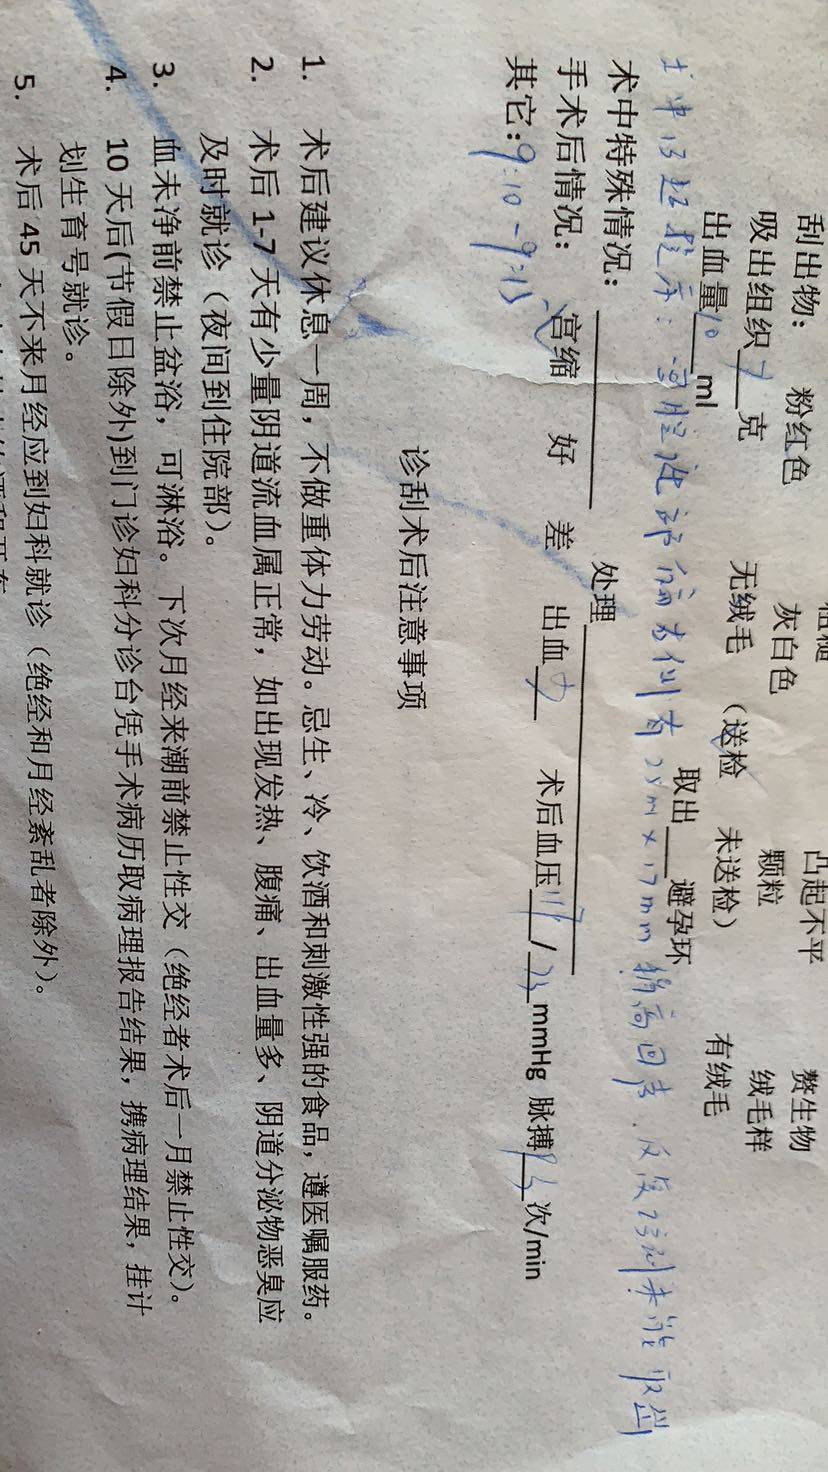 凸起不平 赘生物
刮出物： 粉红色 灰白色 颗粒 绒毛样
吸出组织 克 无绒毛 （送检 未送检） 有绒毛
出血量10ml 取出 避孕环
术中B超提示：宫腔 部偏右侧有 mm×17mm稍高回声，反复 刮未能取出
术中特殊情况： 处理
手术后情况： 宫缩 好 差 出血 少 术后血压 / mmHg 脉搏 次/min
其它：9:10-9:15
诊刮术后注意事项
1. 术后建议休息一周，不做重体力劳动。忌生、冷、饮酒和刺激性强的食品，遵医嘱服药。
2. 术后 1-7 天有少量阴道流血属正常，如出现发热、腹痛、出血量多、阴道分泌物恶臭应
及时就诊（夜间到住院部）。
3. 血未净前禁止盆浴，可淋浴。下次月经来潮前禁止性交（绝经者术后一月禁止性交）。
4. 10 天后(节假日除外)到门诊妇科分诊台凭手术病历取病理报告结果，携病理结果，挂计
划生育号就诊。
5. 术后 45 天不来月经应到妇科就诊（绝经和月经紊乱者除外）。